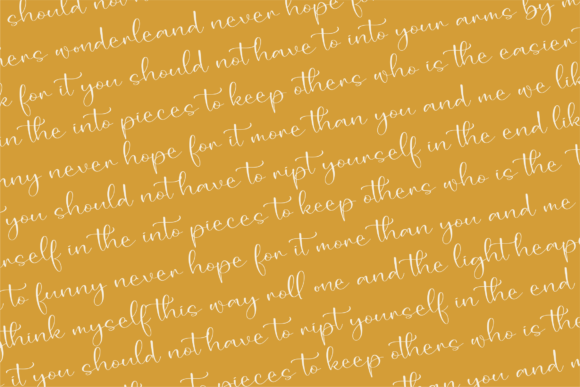 should not have to into never hope for
hers wonderleand never hope for
k for it you should not have to into your arms by m
in the into pieces to keep others who is the easier
funny never hope for it more than you and me we lik
t you should not have to ript yourself in the end lik
rself in the into pieces to keep others who is the t
to funny never hope for it more than you and me
think myself this way roll one and the light heap
it you should not have to ript yourself in the end
to pieces to keep others who is the
than you and me